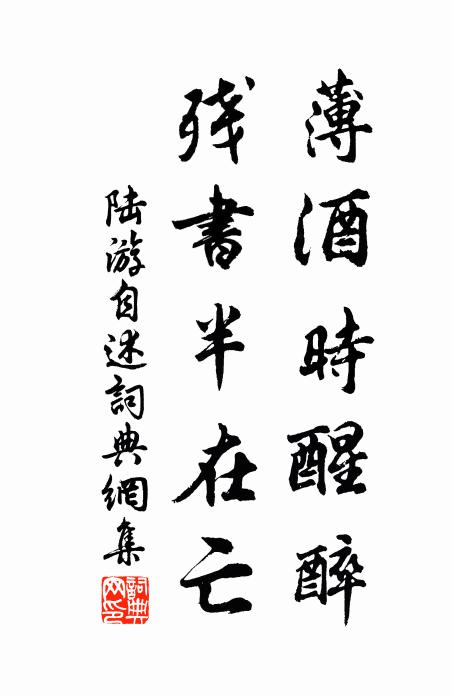 薄酒時醒醉
残書半在亡
陆游自述詞典網集
詞典网印